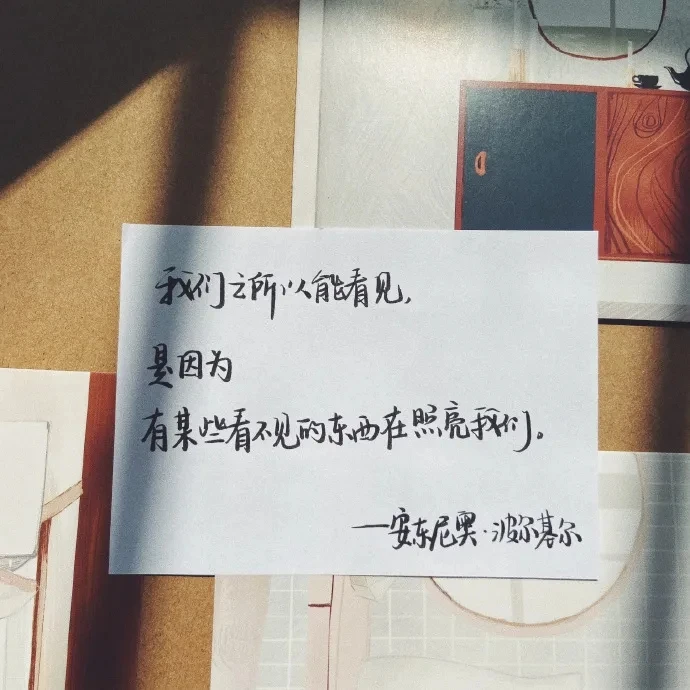 我们之所以能看见,
是因为
有某些看不见的东西在照亮我们。
—安东尼奥·波尔基尔